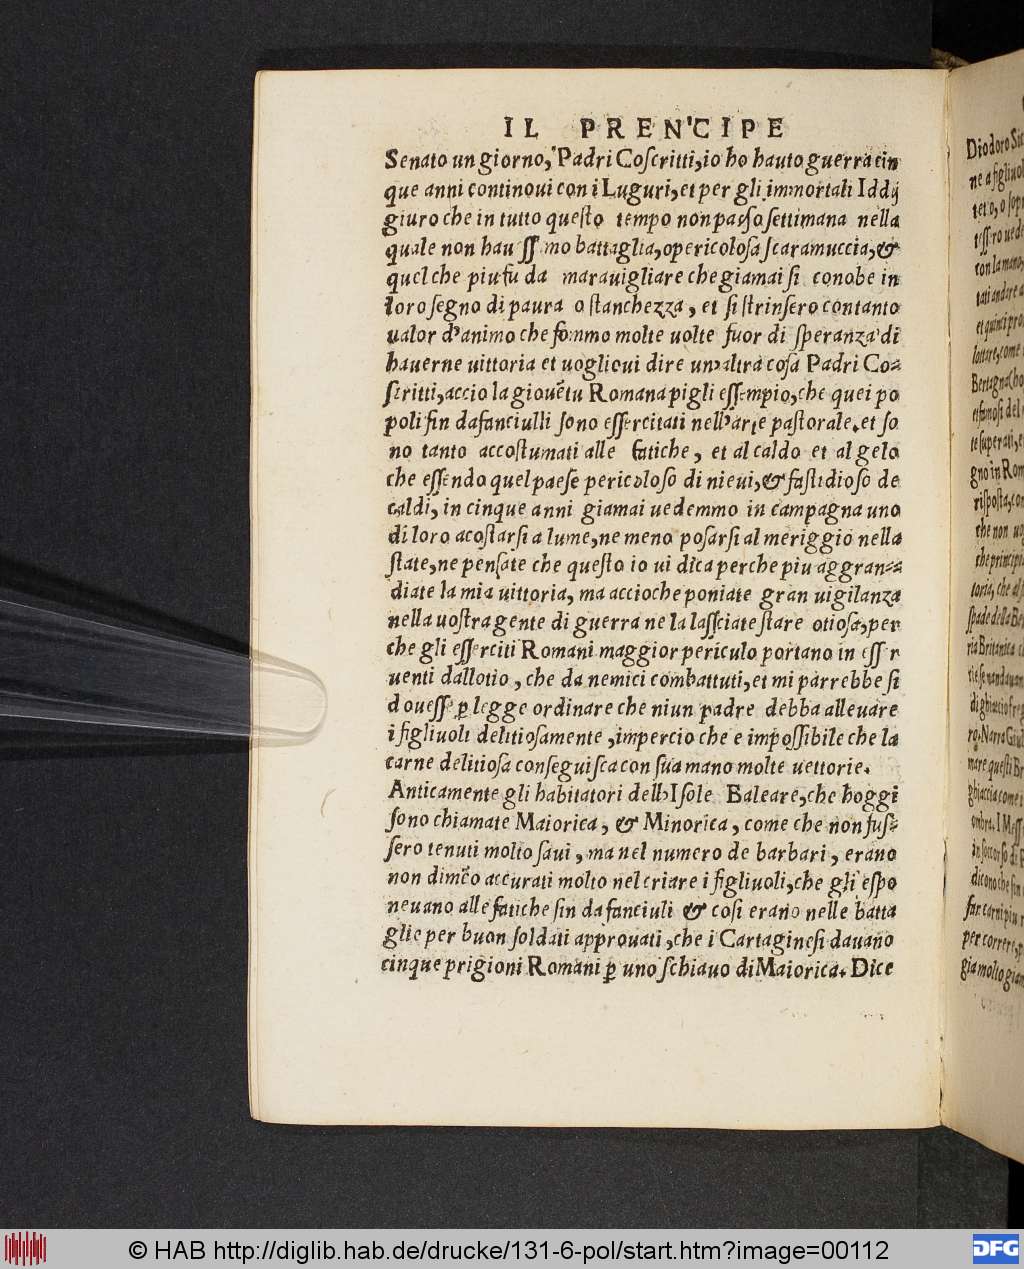 IL PRENCIPE
Senato un giorno, Padri Coscritti, io ho hauto guerra cin
que anni continoui con i Luguri, et per gli immortali Iddij
giuro che in tutto questo tempo non passo settimana nella
quale non hauessimo battaglia, o pericolosa scaramuccia, &
quel che piu fu da marauigliare che giamai si conobe in
loro segno di paura o stanchezza, et si strinsero con tanto
ualor d'animo che fommo molte uolte fuor di speranza di
hauerne uittoria et uoglioui dire un'altra cosa Padri Co=
scritti, accio la giouẽtu Romana pigli essempio, che quei po
poli fin da fanciulli sono essercitati nell'arte pastorale, et so
no tanto accostumati alle fatiche, et al caldo et al gelo
che essendo quel paese pericoloso di nieui, & fastidioso de
caldi, in cinque anni giamai uedemmo in campagna uno
di loro acostarsi a lume, ne meno posarsi al meriggio nella
state, ne pensate che questo io ui dica perche piu aggran=
diate la mia uittoria, ma accioche poniate gran uigilanza
nella uostra gente di guerra ne la lassciate stare otiosa, per
che gli esserciti Romani maggior periculo portano in esser
uenti dallotio, che da nemici combattuti, et mi parrebbe si
douesse ꝑ legge ordinare che niun padre debba alleuare
i figliuoli delitiosamente, impercio che e impossibile che la
carne delitiosa conseguisca con sua mano molte uettorie.
Anticamente gli habitatori dell'Isole Baleare, che hoggi
sono chiamate Maiorica, & Minorica, come che non fus=
sero tenuti molto saui, ma nel numero de barbari, erano
non dimẽo accurati molto nel criare i figliuoli, che gli espo
neuano alle fatiche fin da fanciuli & cosi erano nelle batta
glie per buon soldati approuati, che i Cartaginesi dauano
cinque prigioni Romani ꝑ uno schiauo di Maiorica. Dice
Diodoro
ne a figliuol
con la mano,
et quinci
Bertagna
gno in Rom
risposta, con
che non
che principi
toria, che al
spade della
ria Britanica
di ghiaccio
ro. Narra
mare questi
ghiaccia come
ombra. I
dicono che
far
per correre,
gia molto
© HAB http://diglib.hab.de/drucke/131-6-pol/start.htm?image=00112
DFG